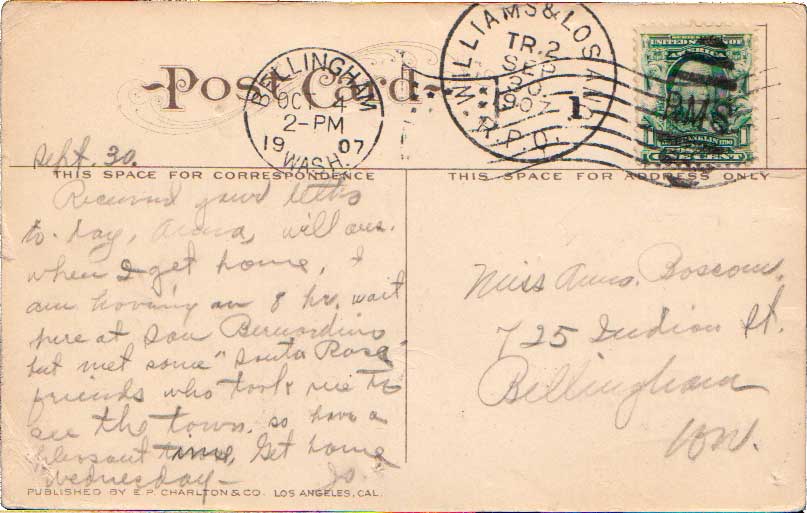 Post Card
BELLINGHAM
OCT 4
2-PM
19 07
WASH.
WILLIAMS & LOS ANG
TR. 2
SEP
30
1907
R.P.O.
1
R.M.S.
UNITED STATES OF
AMERICA
1 FRANKLIN 1790 1
ONE CENT
Sept. 30.
THIS SPACE FOR CORRESPONDENCE
THIS SPACE FOR ADDRESS ONLY
Received your letter
to-day, Anna, will ans.
when I get home, I
am having an 8 hr. wait
here at San Bernardino
but met some "Santa Rosa"
friends who took me to
see the town. so have a
pleasant time. Get home
Wednesday— Jo.
Miss Anna Boscom.
725 Indian St.
Bellingham
Wn.
PUBLISHED BY E.P. CHARLTON & CO. LOS ANGELES, CAL.